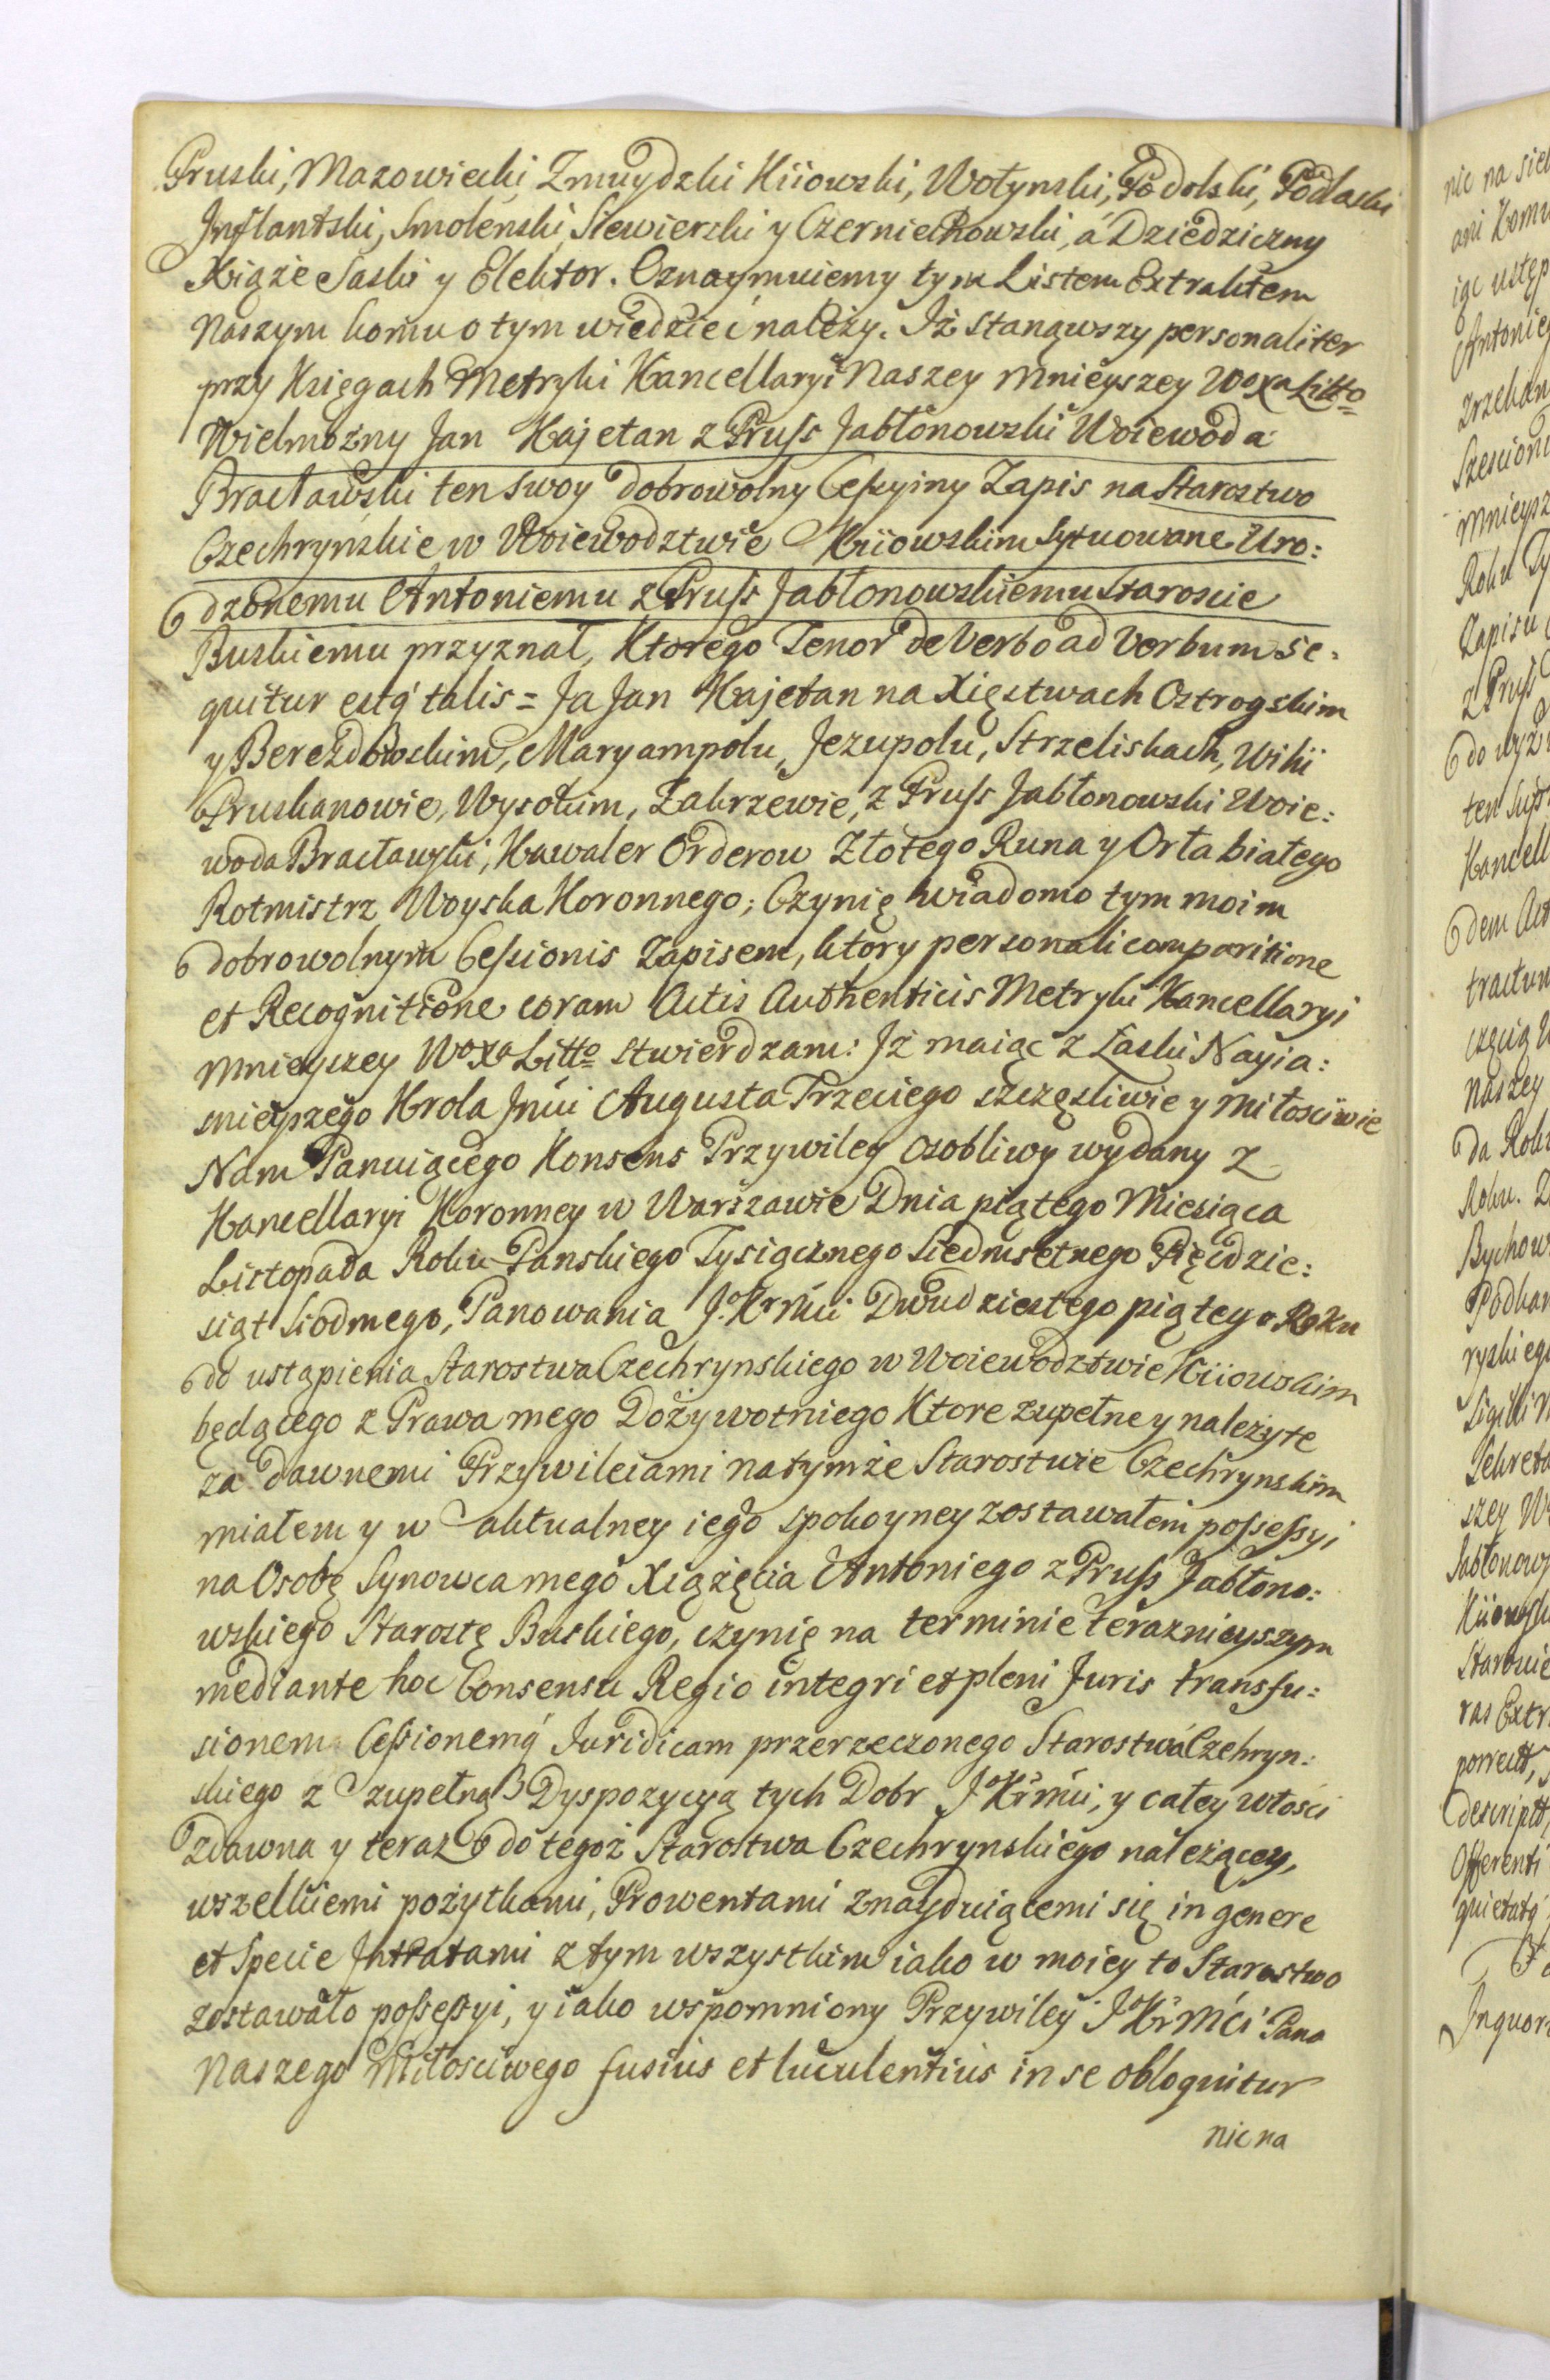 Pruski, Mazowiecki Zmuydzki Kiiowski, Wołynski, Podolski, Podlaski
Inflantski, Smolenski Siewierski y Czerniechowski, á Dziedziczny
Xiąże Saski y Elektor. Oznaymuiemy tym Listem Extraktem
Naszym komu o tym wiedzieć należy. Iż stanąwszy personaliter
przy Księgach Metryki Kancellaryi Naszey mnieyszey Woxa Litto
Wielmożny Jan Kajetan z Pruss Jabłonowski Woiewoda
Bracławski ten swoy dobrowolny Cessyiny Zapis na Starostwo
Czechryńskie w Woiewodztwie Kiiowskim Sytuowane Uro:
dzonemu Antoniemu z Pruss Jabłonowskiemu Staroscie
Buskiemu przyznał, Ktorego Tenor de Verbo ad Verbum se:
quitur estq́ talis = Ja Jan Kajetan na Xięstwach Ostrogskim
y Bereżdowskim, Maryampolu, Jezupolu, Strzeliskach, Wikii
Pruskanowie, Wysokim, Zakrzewie, z Pruss Jabłonowski Woie:
woda Bracławski, Kawaler Orderow Złotego Runa y Orła białego
Rotmistrz Woyska Koronnego; Czynię wiadomo tym moim
dobrowolnym Cessionis Zapisem, ktory personali comparitione
et Recognitione coram Actis Authenticis Metryki Kancellaryi
mnieyszey Woxa Litto stwierdzam: Iż maiąc z Łaski Nayia:
snieyszego Krola Jmci Augusta Trzeciego szczęsliwie y Miłosciwie
Nam Panuiącego Konsens Przywiley osobliwy wydany z
Kancellaryi Koronney w Warszawie Dnia piątego Miesiąca
Listopada Roku Panskiego Tysiącznego Siedmsetnego Pięcdzie:
siąt Siodmego, Panowania J. K Mci Dwudziestego piątego Roku
do ustąpienia Starostwa Czechrynskiego w Woiewodztwie Kiiowskim
będącego z Prawa mego Dożywotniego Ktore zupełne y należyte
za dawnemi Przywileiami na tymże Starostwie Czechrynskim
miałem y w aktualney iego spokoyney zostawałem possessyi
na Osobę Synowca mego Xiążęcia Antoniego z Pruss Jabłono:
wskiego Starostę Buskiego, czynię na terminie teraznieyszym
mediante hoc Consensu Regio integri et pleni Juris transfu:
sionem Cessionemq́ Juridicam przerzeczonego Starostwa Czehryn:
skiego z zupełną Dyspozycyą tych Dobr J K Mci, y całey włości
zdawna y teraz do tegoż Starostwa Czechrynskiego należącey,
wszelkiemi pożytkami, Prowentami znayduiącemi się in genere
et Specie Intratami z tym wszystkim iako w moiey to Starostwo
zostawało possessyi, y iako wspomniony Przywiley J K Mci Pana
Naszego Miłosciwego fusius et luculentius in se obloquitur
nic na